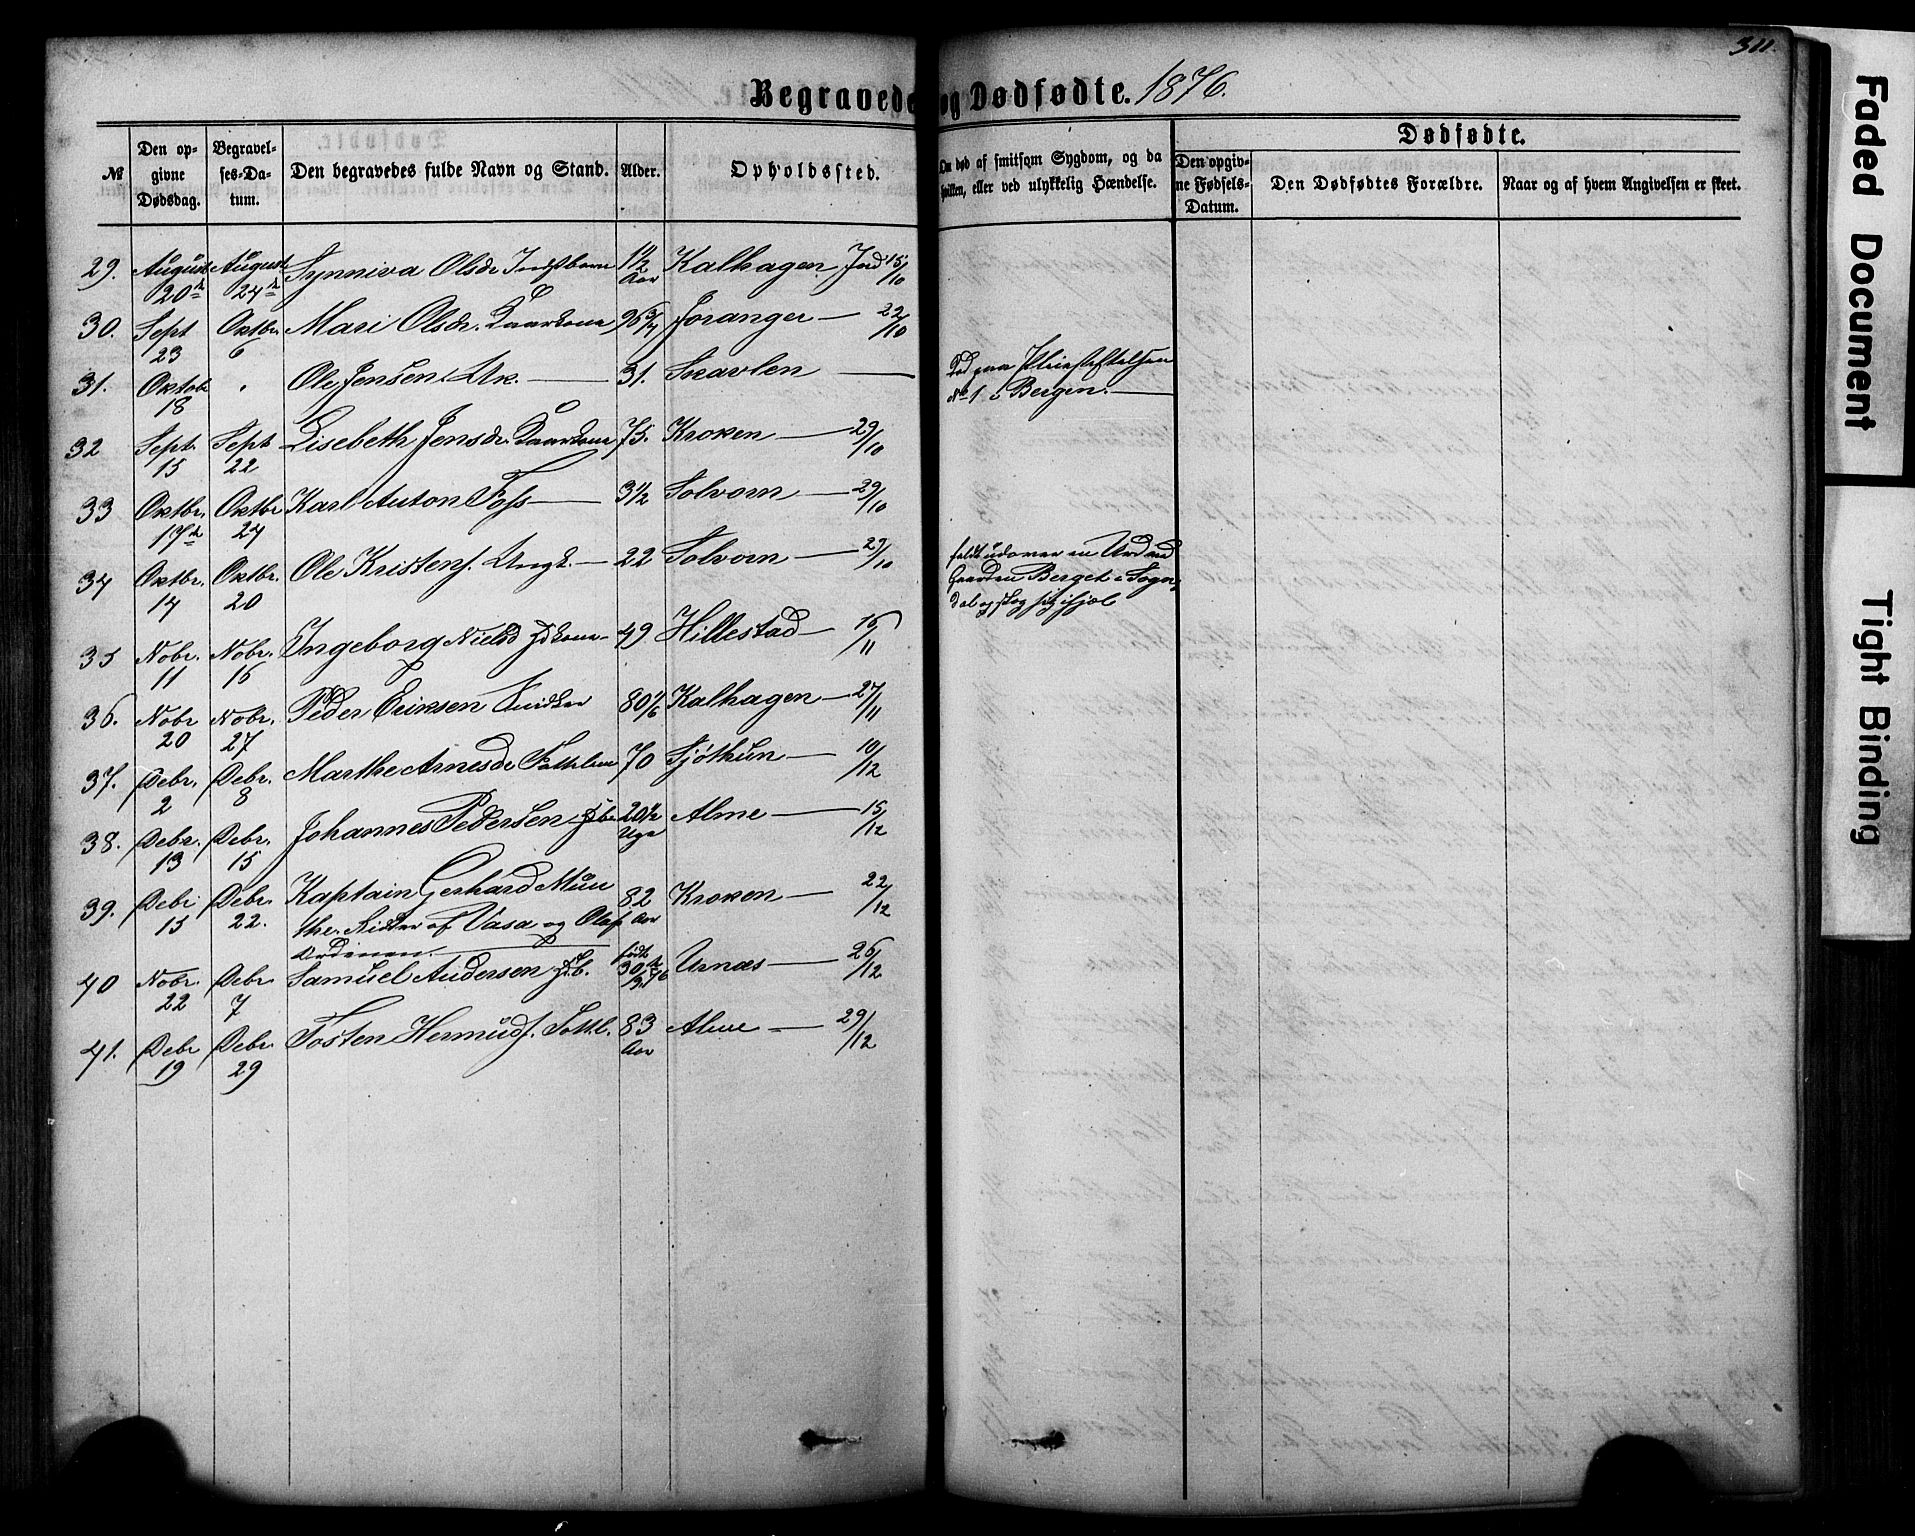 311.
Begravede og Dødfødte. 1876.
№
Den opgivne Dødsdag.
Begravelses-Datum.
Den begravedes fulde Navn og Stand.
Alder.
Opholdssted.
Om død af smitsom Sygdom, og da hvilken, eller ved ulykkelig Hændelse.
Dødfødte.
Den opgivne Fødsels-Datum.
Den Dødfødtes Forældre.
Naar og af hvem Angivelsen er skeet.
29. August 20de August 24de Synniva Olsdr. 1½ Aar Kalhagen Jord 15/10
30. Sept 23 Oktbr. 6 Mari Olsdr. Kaarkone 96 3/4 Joranger — 22/10
31. Oktob 18 Ole Jensen Uk. — 31. Skavlen —
Død paa Pleiestiftelsen
No 1 i Bergen. —
32 Sept. 15 Sept 22 Lisebeth Jensdr. Kaarkone 75. Kroken — 29/10
33 Oktbr. 17de Oktbr 24 Karl Anton Foss — 3½ Solvorn — 29/10
34 Oktbr. 14 Oktbr. 20 Ole Kristens. Ungk. — 22 Solvorn — 29/10
faldt udover en Urd ved
Gaarden Berget i Sogn-
dal og slog sig ihjel
35 Nobr. 11 Nobr. 16 Ingeborg Nielsd. — 49 Hillestad — 16/11
36. Nobr 20 Nobr. 27 Peder Eriksen 80 1/6 Kalhagen — 27/11
37. Debr. 2 Debr. 8 Marthe Arnesdr 70 Sjøthun — 10/12
38. Debr. 13 Debr. 15 Johannes Pedersen 20½ Uge Alme — 15/12
39. Debr 15 Debr. 22. Kaptain Gerhard Mun
the. Ridder af Vasa og Olaf
Ordenen. 82 Aar Kroken — 22/12
40 Nobr. 22 Debr. 7 Samuel Andersen født 30te Urnæs — 26/12
41. Debr 19 Debr. 29 Tosten Hermuds. 83 Aar Alme — 29/12
Faded Document
Tight Binding